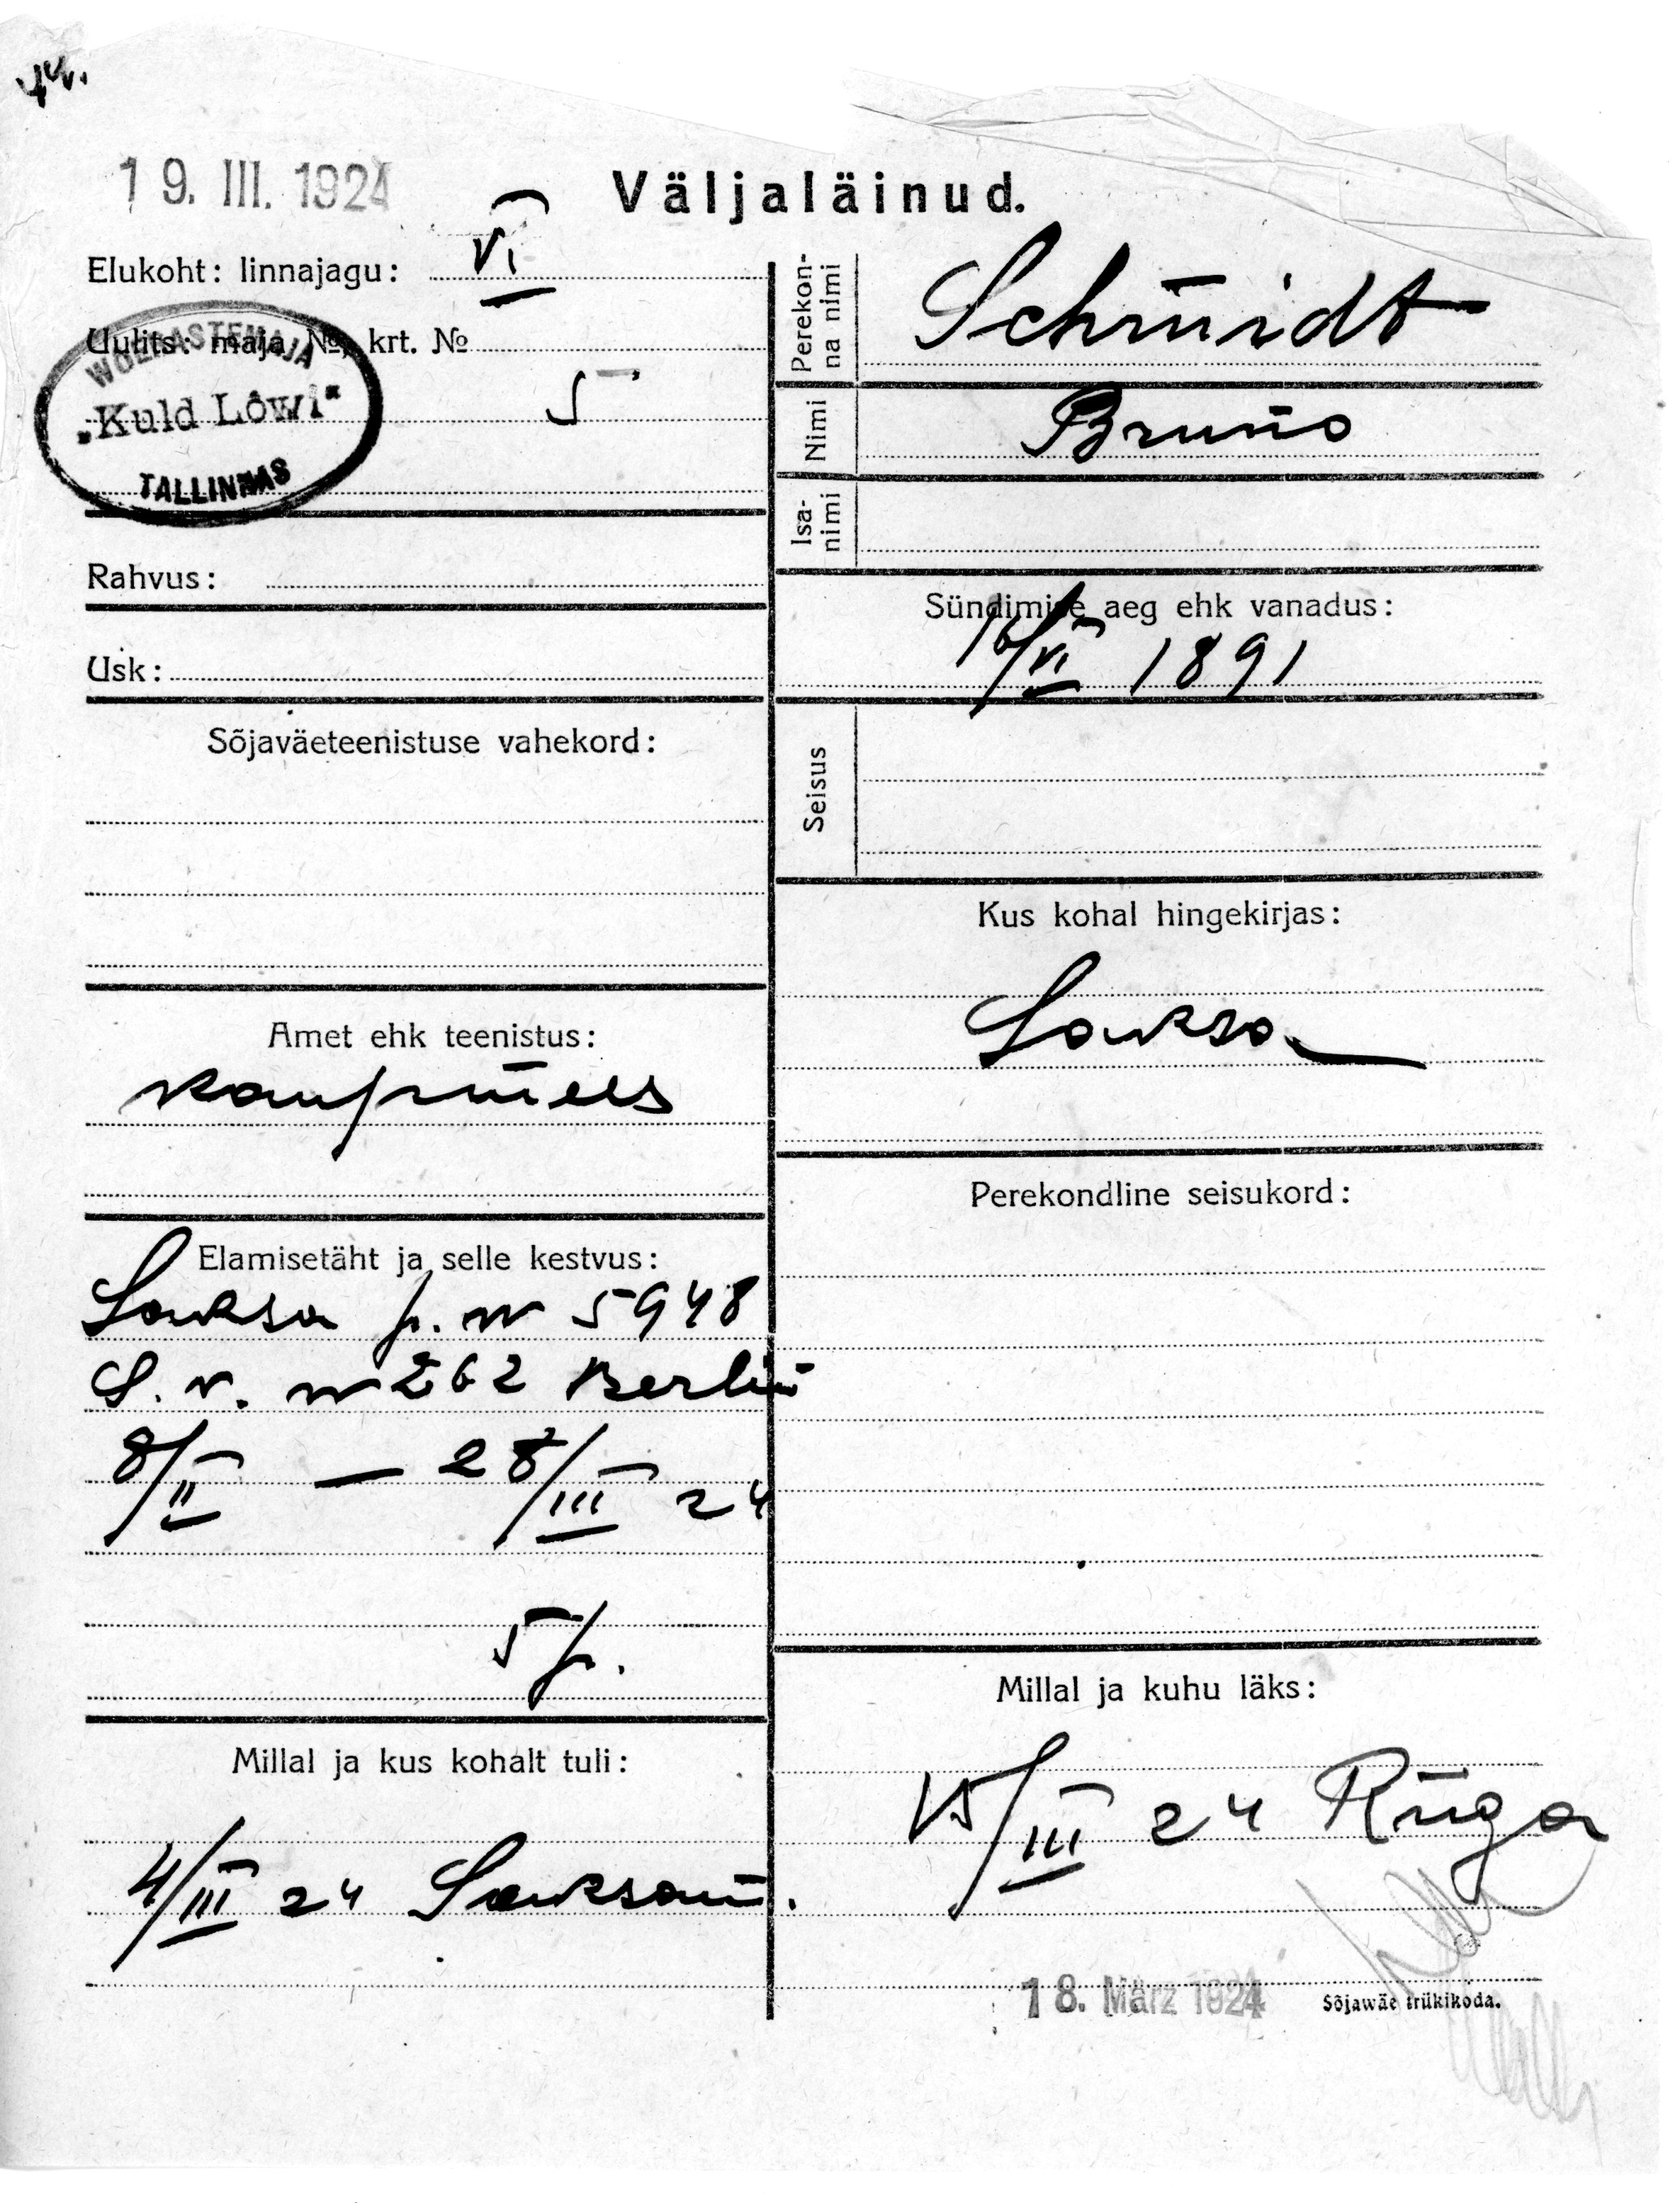 19. III. 1924
Väljaläinud.
Elukoht: linnajagu: VI
Uulits: maja №, krt. №
5
WÕERASTEMAJA
„Kuld Lôwi“
TALLINNAS
Rahvus:
Usk:
Sõjaväeteenistuse vahekord:
Amet ehk teenistus:
kaupmees
Elamisetäht ja selle kestvus:
Saksa p. N 5948
S. v. N 262 Berlin
8/II — 28/III 24
5 p.
Millal ja kus kohalt tuli:
4/III 24 Saksam.
Perekon-
na nimi
Schmidt
Nimi
Bruno
Isa-
nimi
Sündimise aeg ehk vanadus:
16/VI 1891
Seisus
Kus kohal hingekirjas:
Saksa
Perekondline seisukord:
Millal ja kuhu läks:
15/III 24 Riiga
18. März 1924
Sõjawäe trükikoda.